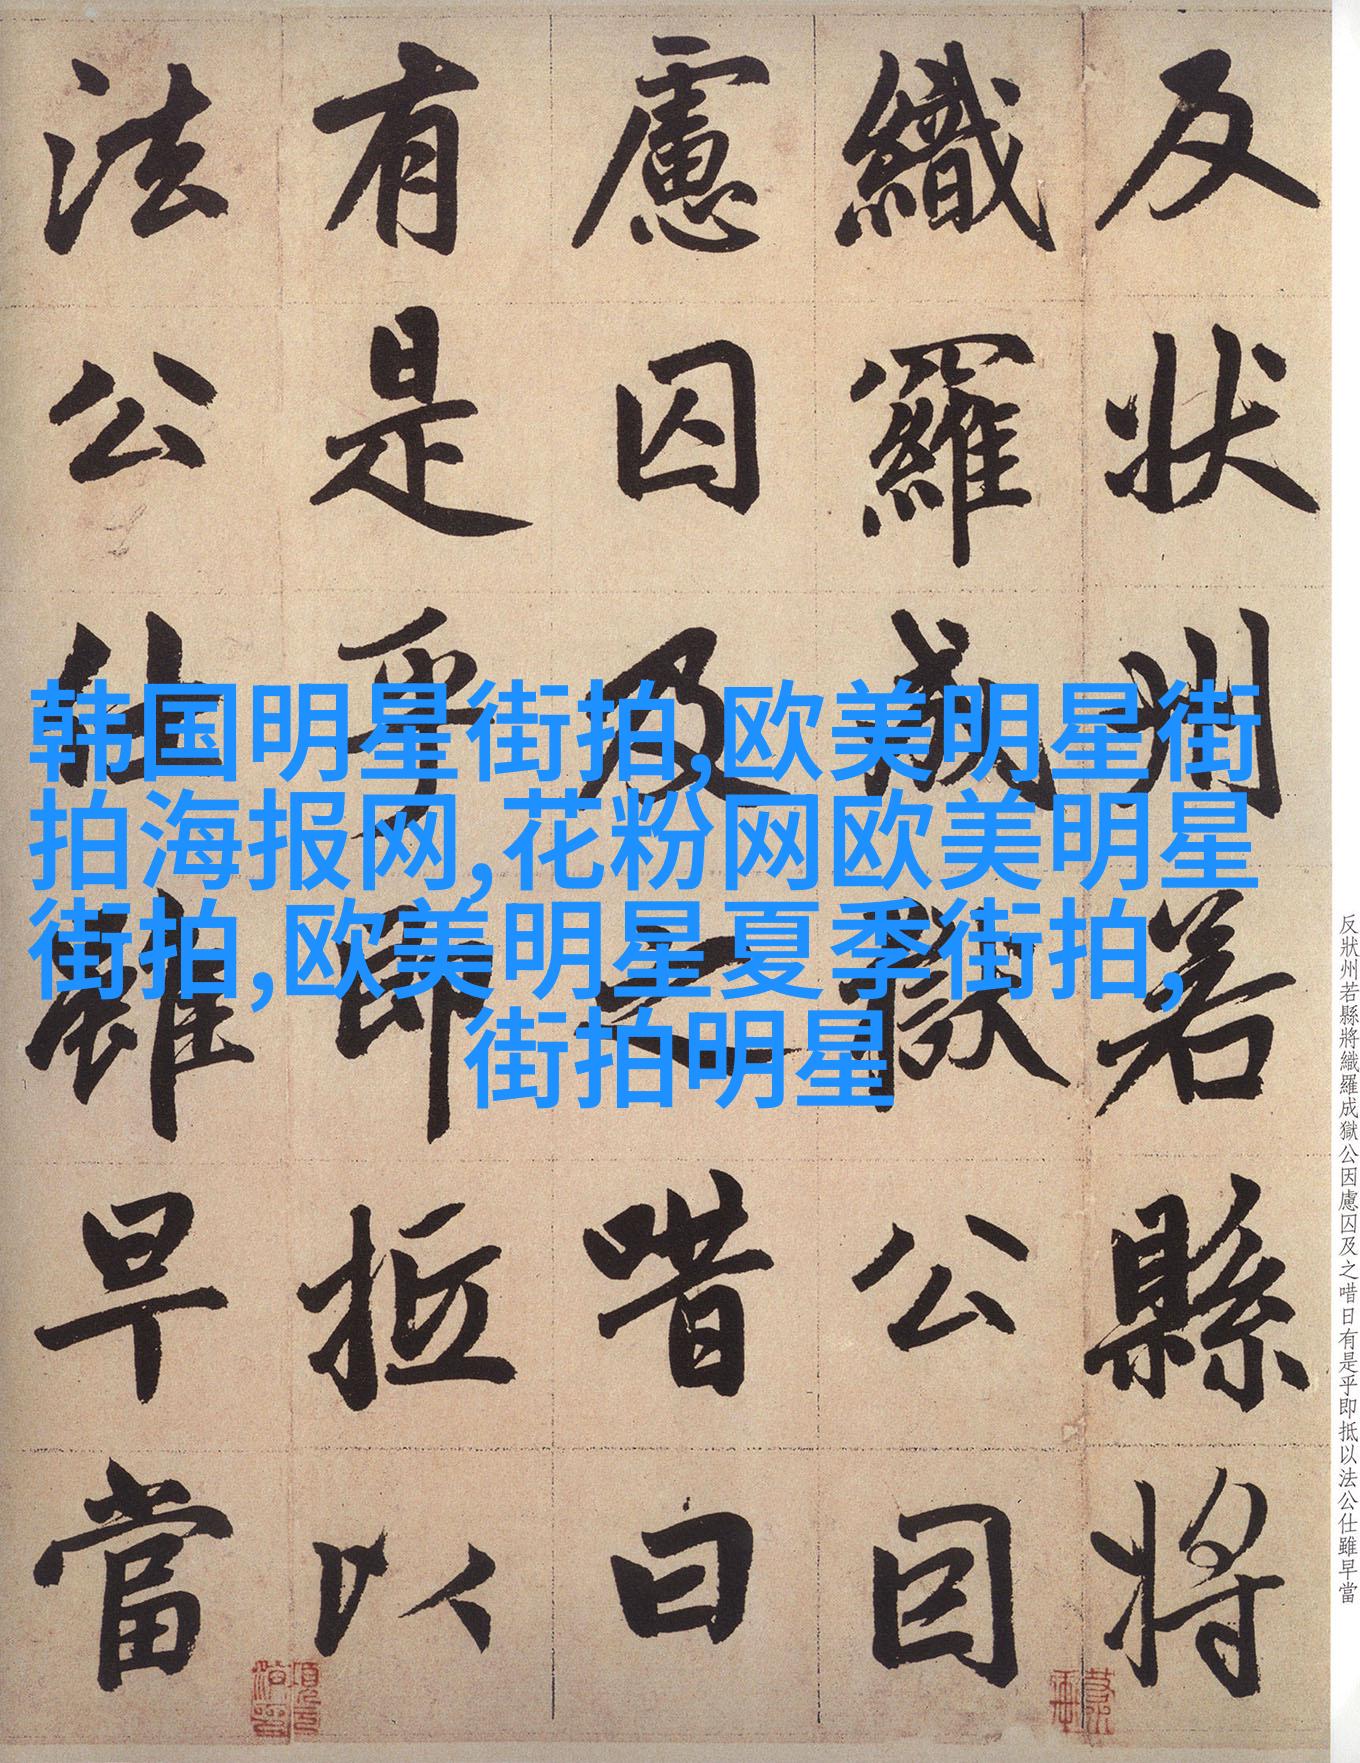 反狀州若縣將
織羅成獄公因
慮囚及之唶曰
有是乎即抵以
法公仕雖早當
韩国明星街拍,欧美明星街
拍海报网,花粉网欧美明星
街拍,欧美明星夏季街拍,
街拍明星
反狀州若縣將織羅成獄公因慮囚及之唶日有是乎即抵以法公仕雖早當